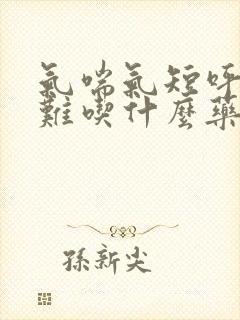 氣喘氣短呼
難喫什麼藥
孫新尖